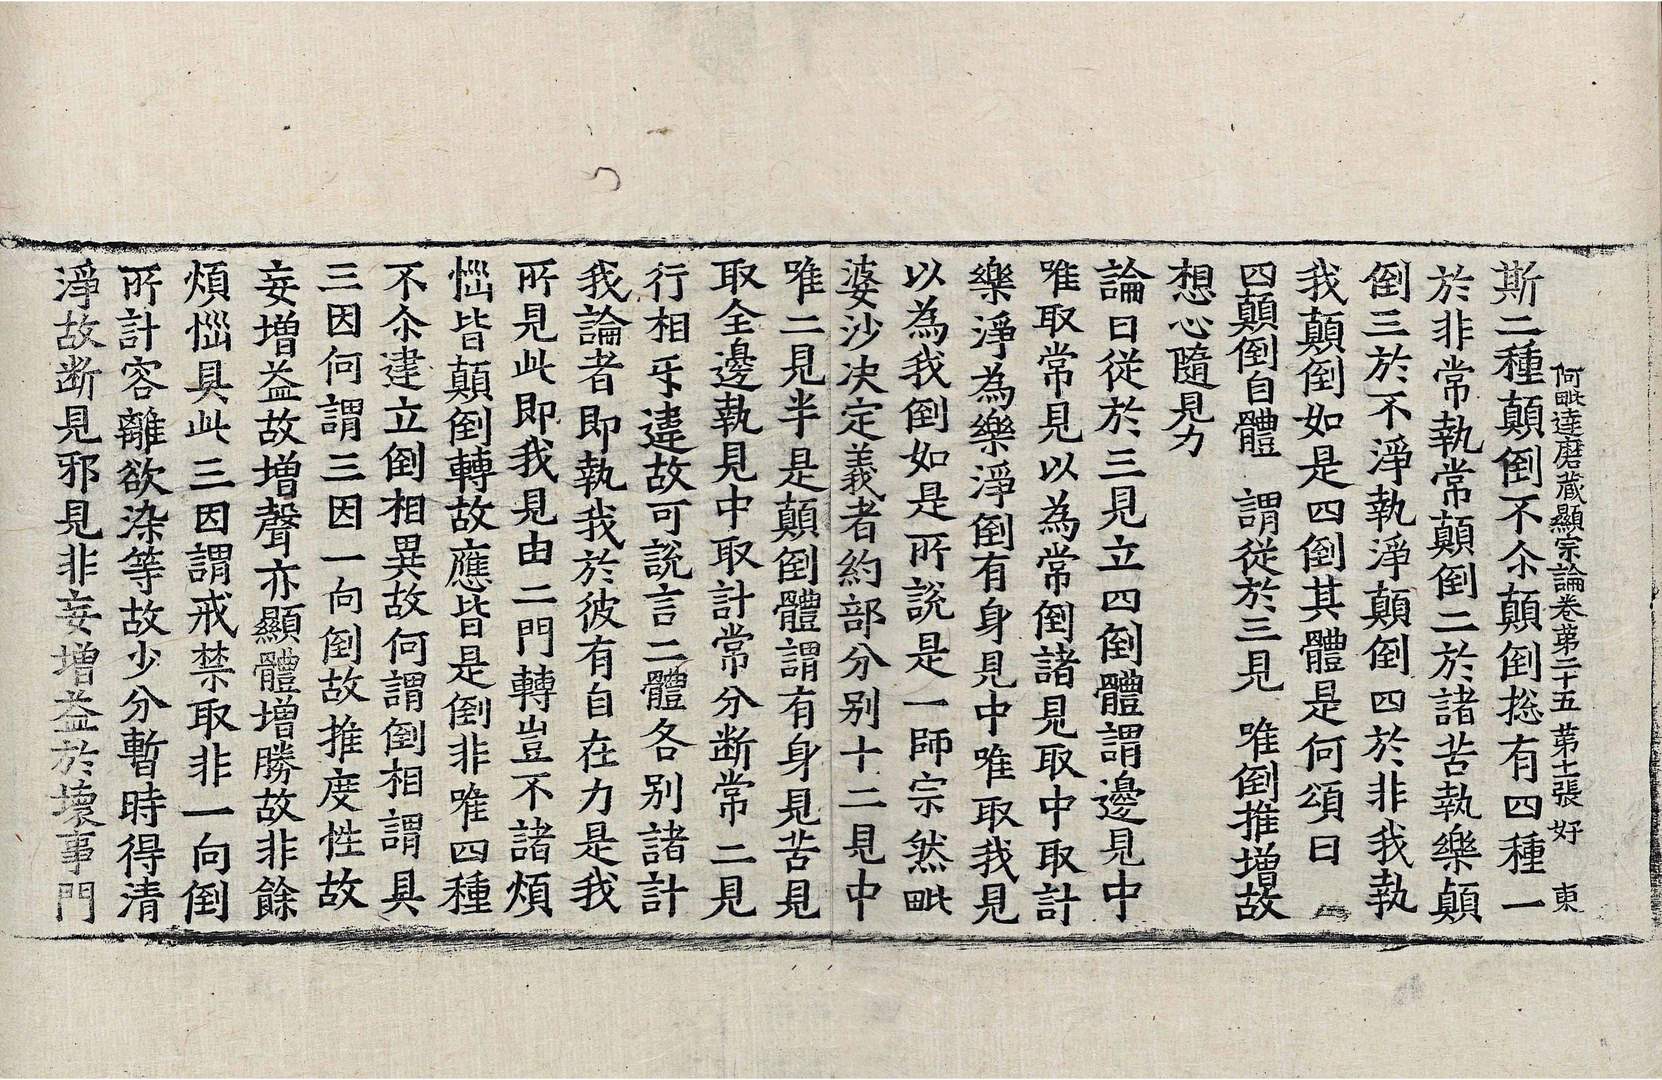 阿毗達磨藏顯宗論卷第二十五 第十一張 好 東
斯二種顛倒不尒顛倒捴有四種一
於非常執常顛倒二於諸苦執樂顛
倒三於不淨執淨顛倒四於非我執
我顛倒如是四倒其體是何頌曰
四顛倒自體 謂從於三見 唯倒推增故
想心隨見力
論曰從於三見立四倒體謂邊見中
唯取常見以為常倒諸見取中取計
樂淨為樂淨倒有身見中唯取我見
以為我倒如是所說是一師宗然毗
婆沙決定義者約部分別十二見中
唯二見半是顛倒體謂有身見苦見
取全邊執見中取計常分斷常二見
行相乖違故可說言二體各別諸計
我論者即執我於彼有自在力是我
所見此即我見由二門轉豈不諸煩
惱皆顛倒轉故應皆是倒非唯四種
不尒建立倒相異故何謂倒相謂具
三因何謂三因一向倒故推度性故
妄增益故增聲亦顯體增勝故非餘
煩惱具此三因謂戒禁取非一向倒
所計容離欲染等故少分暫時得清
淨故断見邪見非妄增益於壞事門